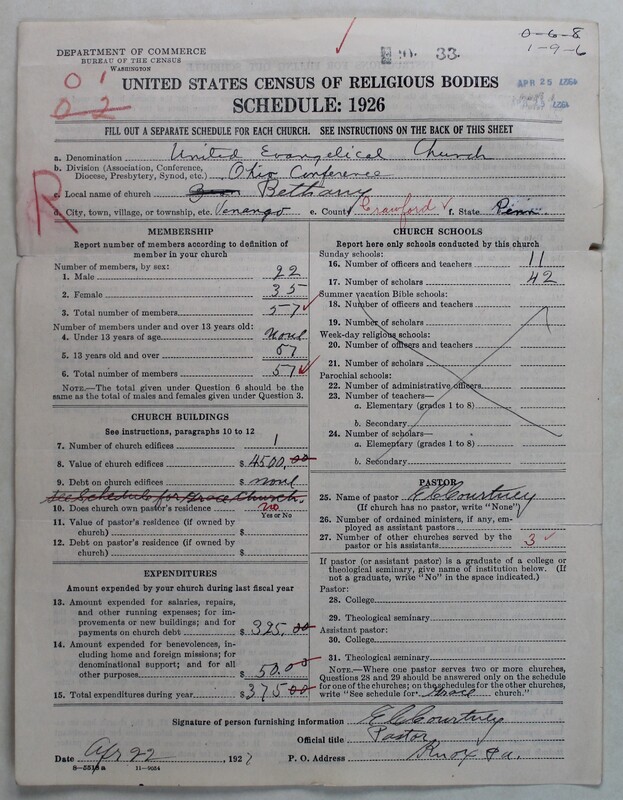 0-6-8
1-9-6
DEPARTMENT OF COMMERCE
BUREAU OF THE CENSUS
WASHINGTON
33
0 1
0 2
UNITED STATES CENSUS OF RELIGIOUS BODIES
SCHEDULE: 1926
APR 25
FILL OUT A SEPARATE SCHEDULE FOR EACH CHURCH. SEE INSTRUCTIONS ON THE BACK OF THIS SHEET
R
a. Denomination United Evangelical Church
b. Division (Association, Conference, Diocese, Presbytery, Synod, etc.) Ohio Conference
c. Local name of church Bethany
d. City, town, village, or township, etc. Venango e. County Crawford f. State Penn.
MEMBERSHIP
Report number of members according to definition of
member in your church
Number of members, by sex:
1. Male 22
2. Female 35
3. Total number of members 57
Number of members under and over 13 years old:
4. Under 13 years of age none
5. 13 years old and over 57
6. Total number of members 57
NOTE.—The total given under Question 6 should be the
same as the total of males and females given under Question 3.
CHURCH BUILDINGS
See instructions, paragraphs 10 to 12
7. Number of church edifices 1
8. Value of church edifices $ 4500.00
9. Debt on church edifices $ none
See Schedule for Grace Church.
10. Does church own pastor's residence no
Yes or No
11. Value of pastor's residence (if owned by
church) $
12. Debt on pastor's residence (if owned by
church) $
EXPENDITURES
Amount expended by your church during last fiscal year
13. Amount expended for salaries, repairs,
and other running expenses; for im-
provements or new buildings; and for
payments on church debt $ 325.00
14. Amount expended for benevolences, in-
cluding home and foreign missions; for
denominational support; and for all
other purposes $ 50.00
15. Total expenditures during year $ 375.00
CHURCH SCHOOLS
Report here only schools conducted by this church
Sunday schools:
16. Number of officers and teachers 11
17. Number of scholars 42
Summer vacation Bible schools:
18. Number of officers and teachers
19. Number of scholars
Week-day religious schools:
20. Number of officers and teachers
21. Number of scholars
Parochial schools:
22. Number of administrative officers
23. Number of teachers—
a. Elementary (grades 1 to 8)
b. Secondary
24. Number of scholars—
a. Elementary (grades 1 to 8)
b. Secondary
PASTOR
25. Name of pastor E C Courtney
(If church has no pastor, write "None")
26. Number of ordained ministers, if any, em-
ployed as assistant pastors
27. Number of other churches served by the
pastor or his assistants 3
If pastor (or assistant pastor) is a graduate of a college or
theological seminary, give name of institution below. (If
not a graduate, write "No" in the space indicated.)
Pastor:
28. College
29. Theological seminary
Assistant pastor:
30. College
31. Theological seminary
NOTE.—Where one pastor serves two or more churches,
Questions 28 and 29 should be answered only on the schedule
for one of the churches; on the schedules for the other churches,
write "See schedule for Grace church."
Signature of person furnishing information E C Courtney
Official title Pastor
Date Apr 22 1927 P. O. Address Knox Pa.
8—5518a 11—9054